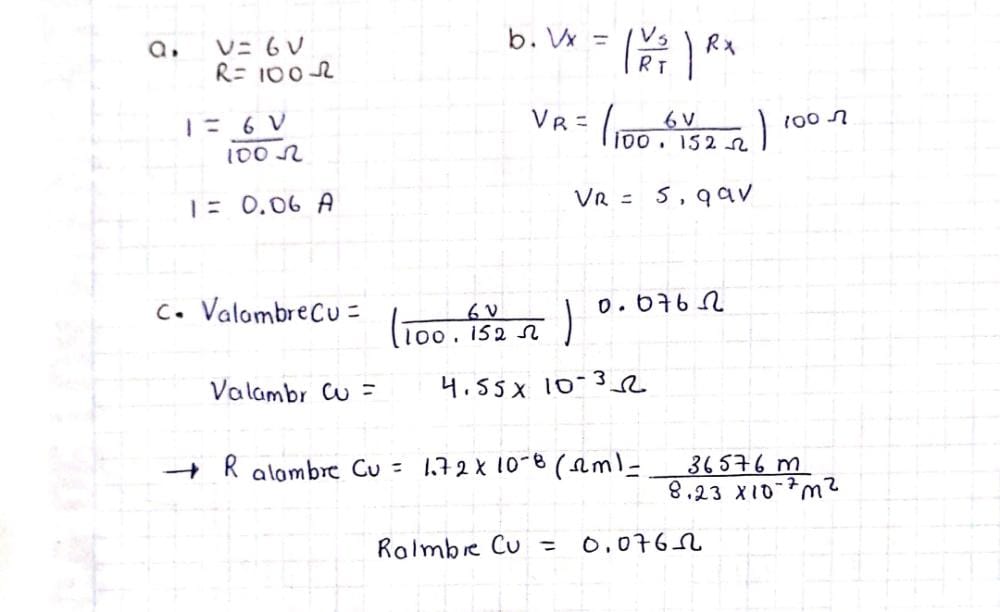 a. V= 6 V
R= 100 Ω
I = 6 V / 100 Ω
I = 0.06 A
b. Vx = (Vs / RT) Rx
VR = (6V / 100.152 Ω) 100 Ω
VR = 5,99V
c. Valambre Cu = (6V / 100.152 Ω) 0.076 Ω
Valambr Cu = 4.55 x 10⁻³ Ω
→ R alambre Cu = 1.72 x 10⁻⁸ (Ωm) = 36576 m / 8.23 x10⁻⁷ m²
Ralmbre Cu = 0.076 Ω